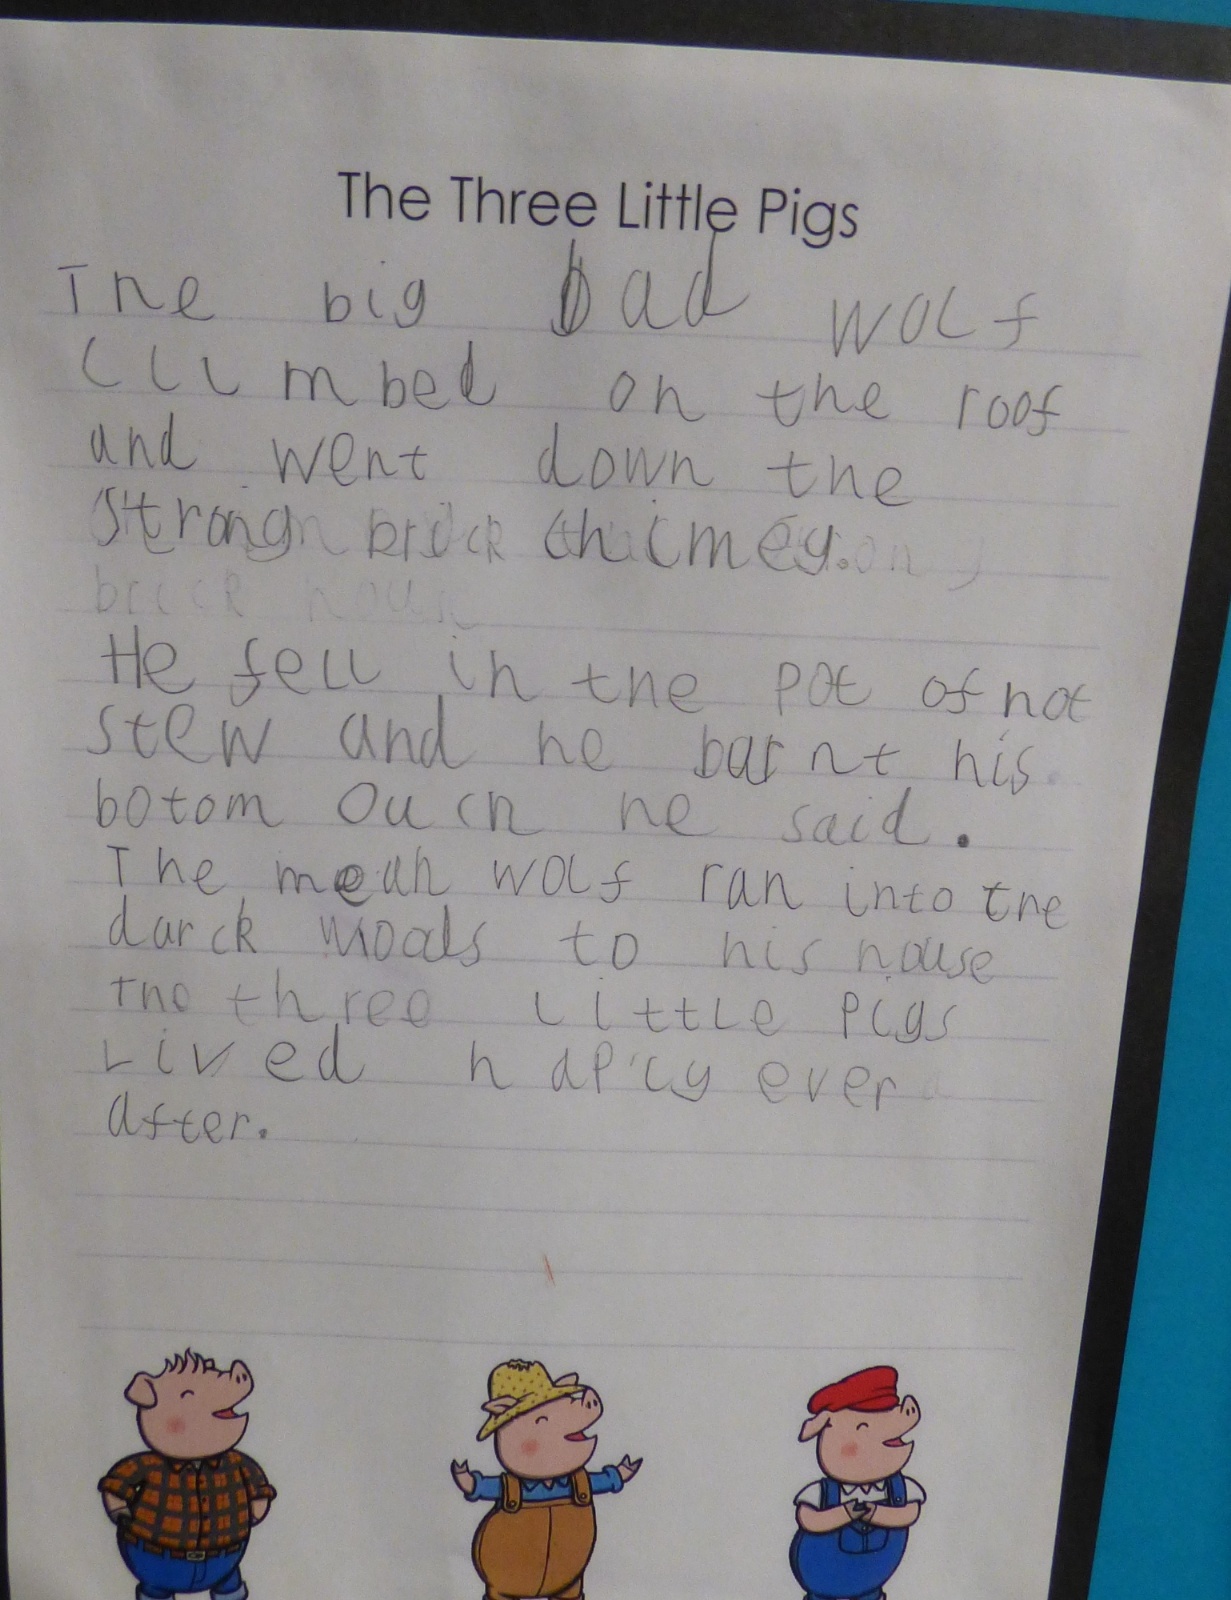 The Three Little Pigs
The big bad wolf
clImbed on the roof
and went down the
strong brick chimey.
He fell in the pot of hot
stew and he barnt his
botom ouch he said.
The mean wolf ran into the
darck woods to his house
the three little pigs
Lived hapily ever
after.